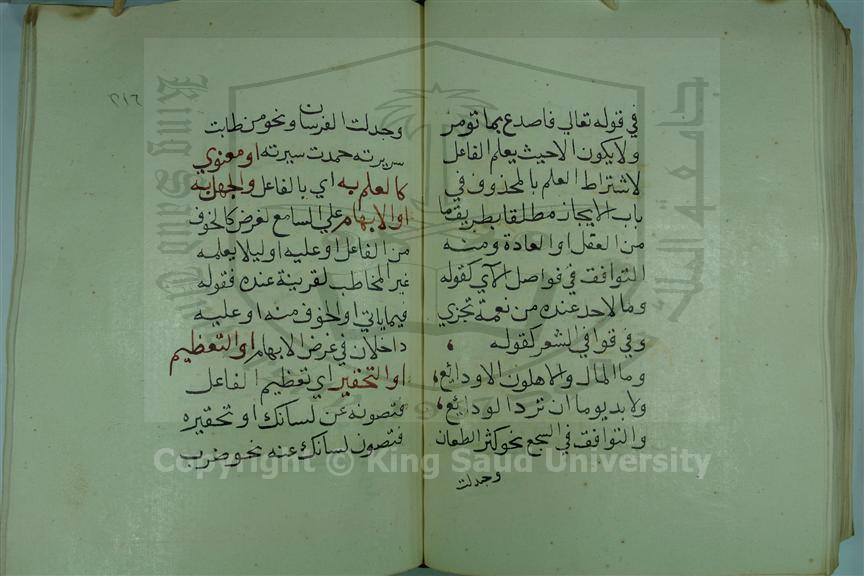 في قوله تعالي فاصدع بما تومر
ولا يكون الا حيث يعلم الفاعل
لاشتراط العلم بالمحذوف في
باب الايجاز مطلقا بطريق ما
من العقل او العادة ومنه
التوافق في فواصل الآي كقوله
وما لاحد عنده من نعمة تجزي
وفي قوافي الشعر كقوله
وما المال والاهلون الا ودائع
ولا بد يوما ان ترد الودائع
والتوافق في السجع نحو كثر الطعان
وجدلت
٢١٦
وجدلت الفرسان ونحو من طابت
سريرته حمدت سيرته او معنوي
كالعلم به اي بالفاعل والجهل به
او الابهام علي السامع لغرض كالخوف
من الفاعل او عليه او ليلا يعلمه
غير المخاطب لقرينة عنده فقوله
فيما ياتي او الخوف منه او عليه
داخلان في غرض الابهام او التعظيم
او التحقير اي تعظيم الفاعل
فتصونه عن لسانك او تحقيره
فتصون لسانك عنه نحو ضرب
جامعة الملك
King Saud University
Copyright © King Saud University